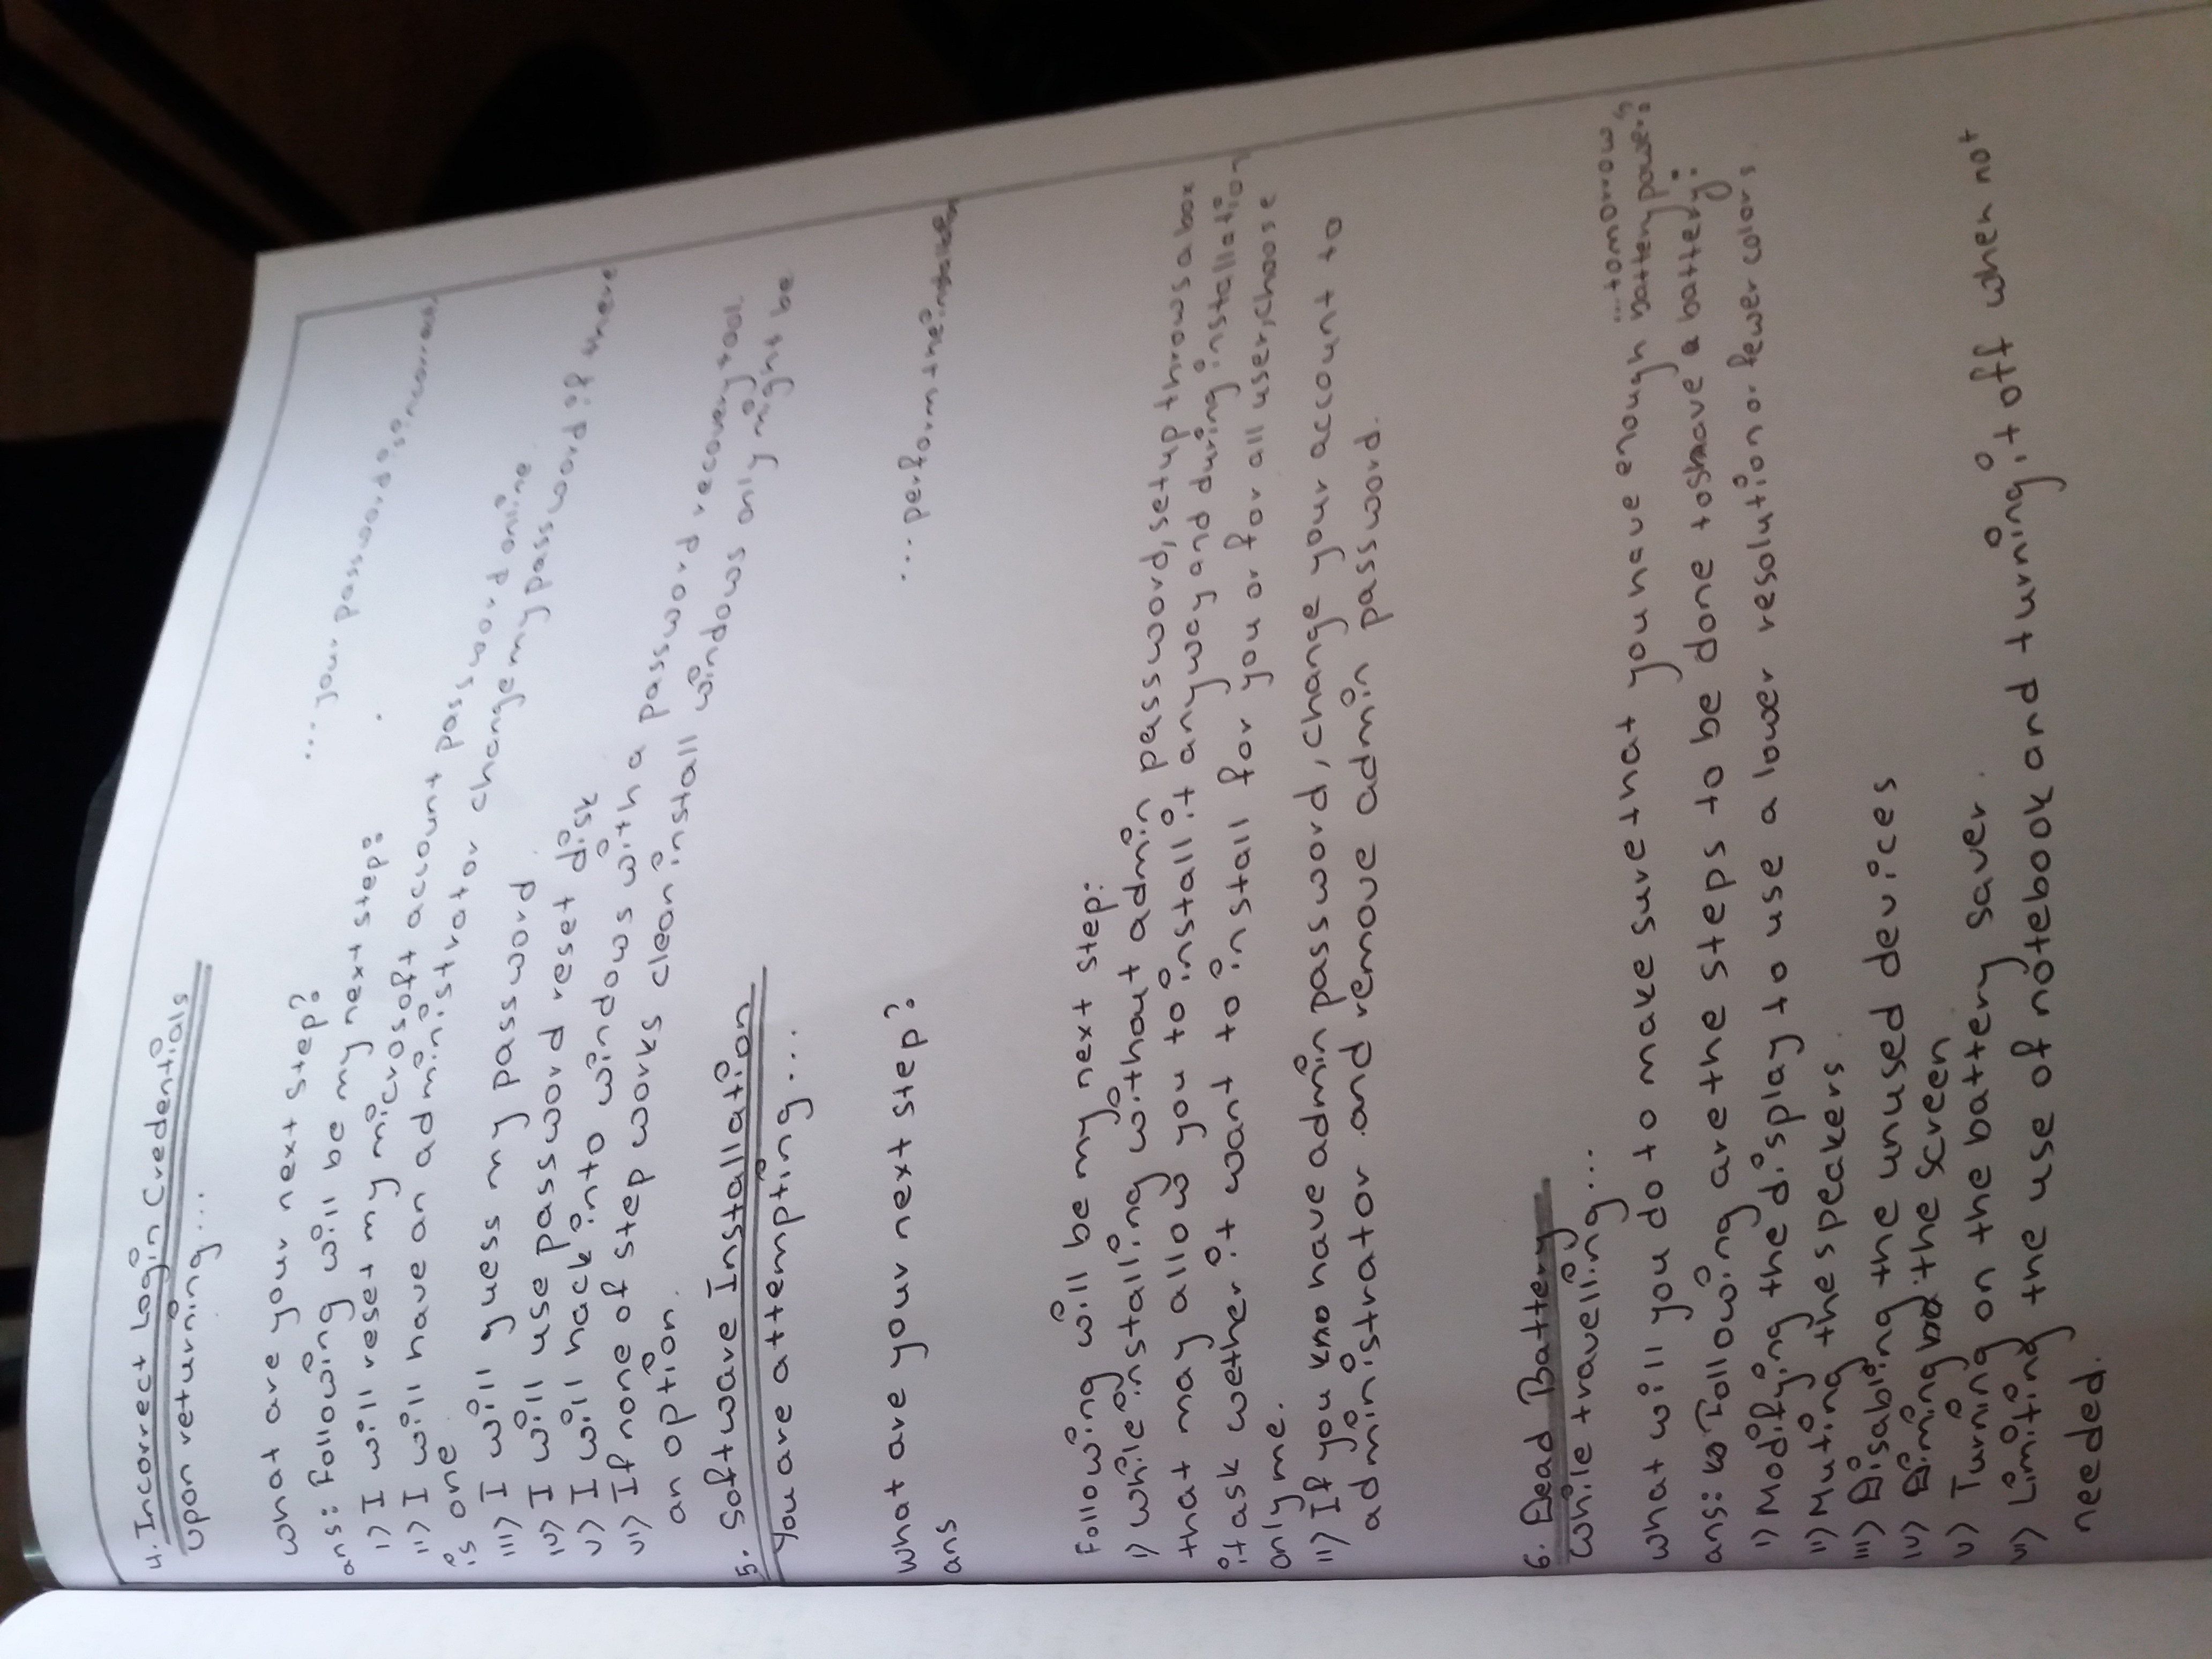 4. Incorrect Login Credentials
upon returning...
... your password is incorrect.
what are your next step?
ans: Following will be my next step:
i) I will reset my microsoft account password online.
ii) I will have an administrator change my password if there
is one.
iii) I will guess my password.
iv) I will use password reset disk
v) I will hack into windows with a password recovery tool.
vi) If none of step works clean install windows only might be
an option.
5. Software Installation
You are attempting...
... perform the installation
what are your next step?
ans
Following will be my next step:
i) while installing without admin password, setup throws a box
that may allow you to install it anyway and during installation
it ask wether it want to install for you or for all user, choose
only me.
ii) If you have admin password, change your account to
administrator and remove admin password.
6. Dead Battery
while travelling...
...tomorrow.
what will you do to make sure that you have enough battery power?
ans: Following are the steps to be done to have a battery:
i) Modifying the display to use a lower resolution or fewer colors
ii) Muting the speakers.
iii) Disabling the unused devices
iv) Diming the screen
v) Turning on the battery saver.
vi) Limiting the use of notebook and turning it off when not
needed.